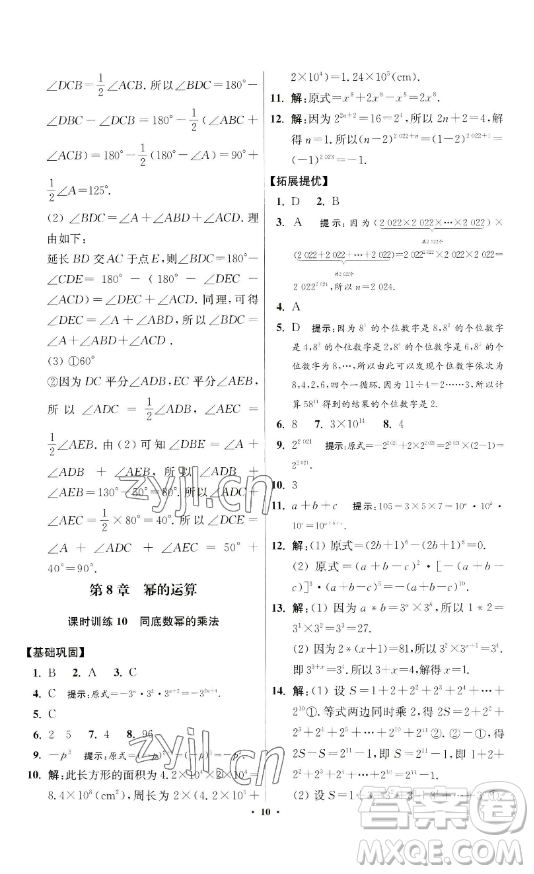 ∠DCB=1/2∠ACB. 所以∠BDC=180°−
∠DBC−∠DCB=180°−1/2(∠ABC+
∠ACB)=180°−1/2(180°−∠A)=90°+
1/2∠A=125°.
(2) ∠BDC=∠A+∠ABD+∠ACD. 理
由如下:
延长BD交AC于点E,则∠BDC=180°−
∠CDE=180°−(180°−∠DEC−
∠ACD)=∠DEC+∠ACD. 同理,可得
∠DEC=∠A+∠ABD,所以∠BDC=
∠A+∠ABD+∠ACD.
(3) ①60°
②因为DC平分∠ADB,EC平分∠AEB,
所以∠ADC=1/2∠ADB,∠AEC=
1/2∠AEB. 由(2)可知∠DBE=∠A+
∠ADB+∠AEB,所以∠ADB+
∠AEB=130°−50°=80°. 所以∠ADC+
∠AEC=1/2×80°=40°. 所以∠DCE=
∠A+∠ADC+∠AEC=50°+
40°=90°.
第8章 幂的运算
课时训练10 同底数幂的乘法
【基础巩固】
1. B 2. A 3. C
4. C 提示:原式=−3ⁿ·3²·3ⁿ⁺²=−3²ⁿ⁺⁴.
5. C
6. 2 5 7. 4 8. 96
10. 解:此长方形的面积=4.2×10⁴×2×10⁴=
8.4×10⁸(cm²),周长为2×(4.2×10⁴+
2×10⁴)=1.24×10⁵(cm).
11. 解:原式=x⁸+2x⁸−x⁸=2x⁸.
12. 解:因为2²ⁿ⁺²=16=2⁴,所以2n+2=4,解
得n=1. 所以(n−2)²⁰²²⁺ⁿ=(1−2)²⁰²²⁺¹=
(−1)²⁰²³=−1.
【拓展提优】
1. D 2. B
3. A 提示:因为(2 022×2 022×…×2 022)×
共2 022个
(2 022+2 022+…+2 022)=2 022²⁰²²×2 022×2 022=
共2 022个
2 022²⁰²⁴,所以n=2 024.
4. A
5. D 提示:因为8¹的个位数字是8,8²的个位数字
是4,8³的个位数字是2,8⁴的个位数字是6,8⁵的个位数字
为8,…,所以由此可以发现个位数字依次为
8,4,2,6,四个一循环. 因为11÷4=2……3,所以
计算58¹¹得到的结果的个位数字是2.
6. 8 7. 3×10¹¹ 8. 4
9. 2²⁰²¹ 提示:原式=−2²⁰²¹+2²⁰²²=2²⁰²¹×(2−1)=
2²⁰²¹.
10. 3
11. a+b+c 提示:105=3×5×7=10ᵃ·10ᵇ·
10ᶜ=10ᵃ⁺ᵇ⁺ᶜ.
12. 解:(1) 原式=(2b+1)⁸.
(2) 原式=(a−b)²·[−(a−
b)]³·(a−b)⁴=−(a−b)⁹.
13. 解:(1) 因为a*b=3ᵃ×3ᵇ,所以1*2=3¹×
3²=27.
(2) 因为2*(x+1)=81,所以3²×3ˣ⁺¹=3⁴.
即3³⁺ˣ=3⁴,则3+x=4,解得x=1.
14. 解:(1) 设S=1+2+2²+2³+2⁴+…+
2¹⁰①. 等式两边同时乘2,得2S=2+2²+
2³+2⁴+2⁵+…+2¹⁰+2¹¹②. ②−①,得
2S−S=2¹¹−1,即S=2¹¹−1. 所以1+2+
2²+2³+2⁴+…+2¹⁰=2¹¹−1.
(2) 设S=1+3+3²+3³+3⁴+…
·10·
zyjl.cn
zyjl.cn
答案圈
MXQE.COM